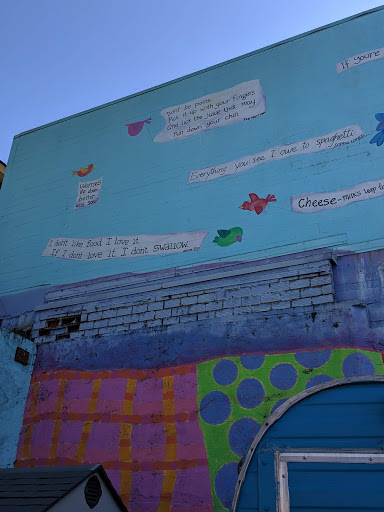 If youre
Dont be polite
Pick it up with your fingers
and lick the juice that may
run down your chin.
Everything you see I owe to spaghetti
Worries
go down
better
with soup
Cheese-milks leap to
I dont like food. I love it.
If I dont love it, I dont swallow.